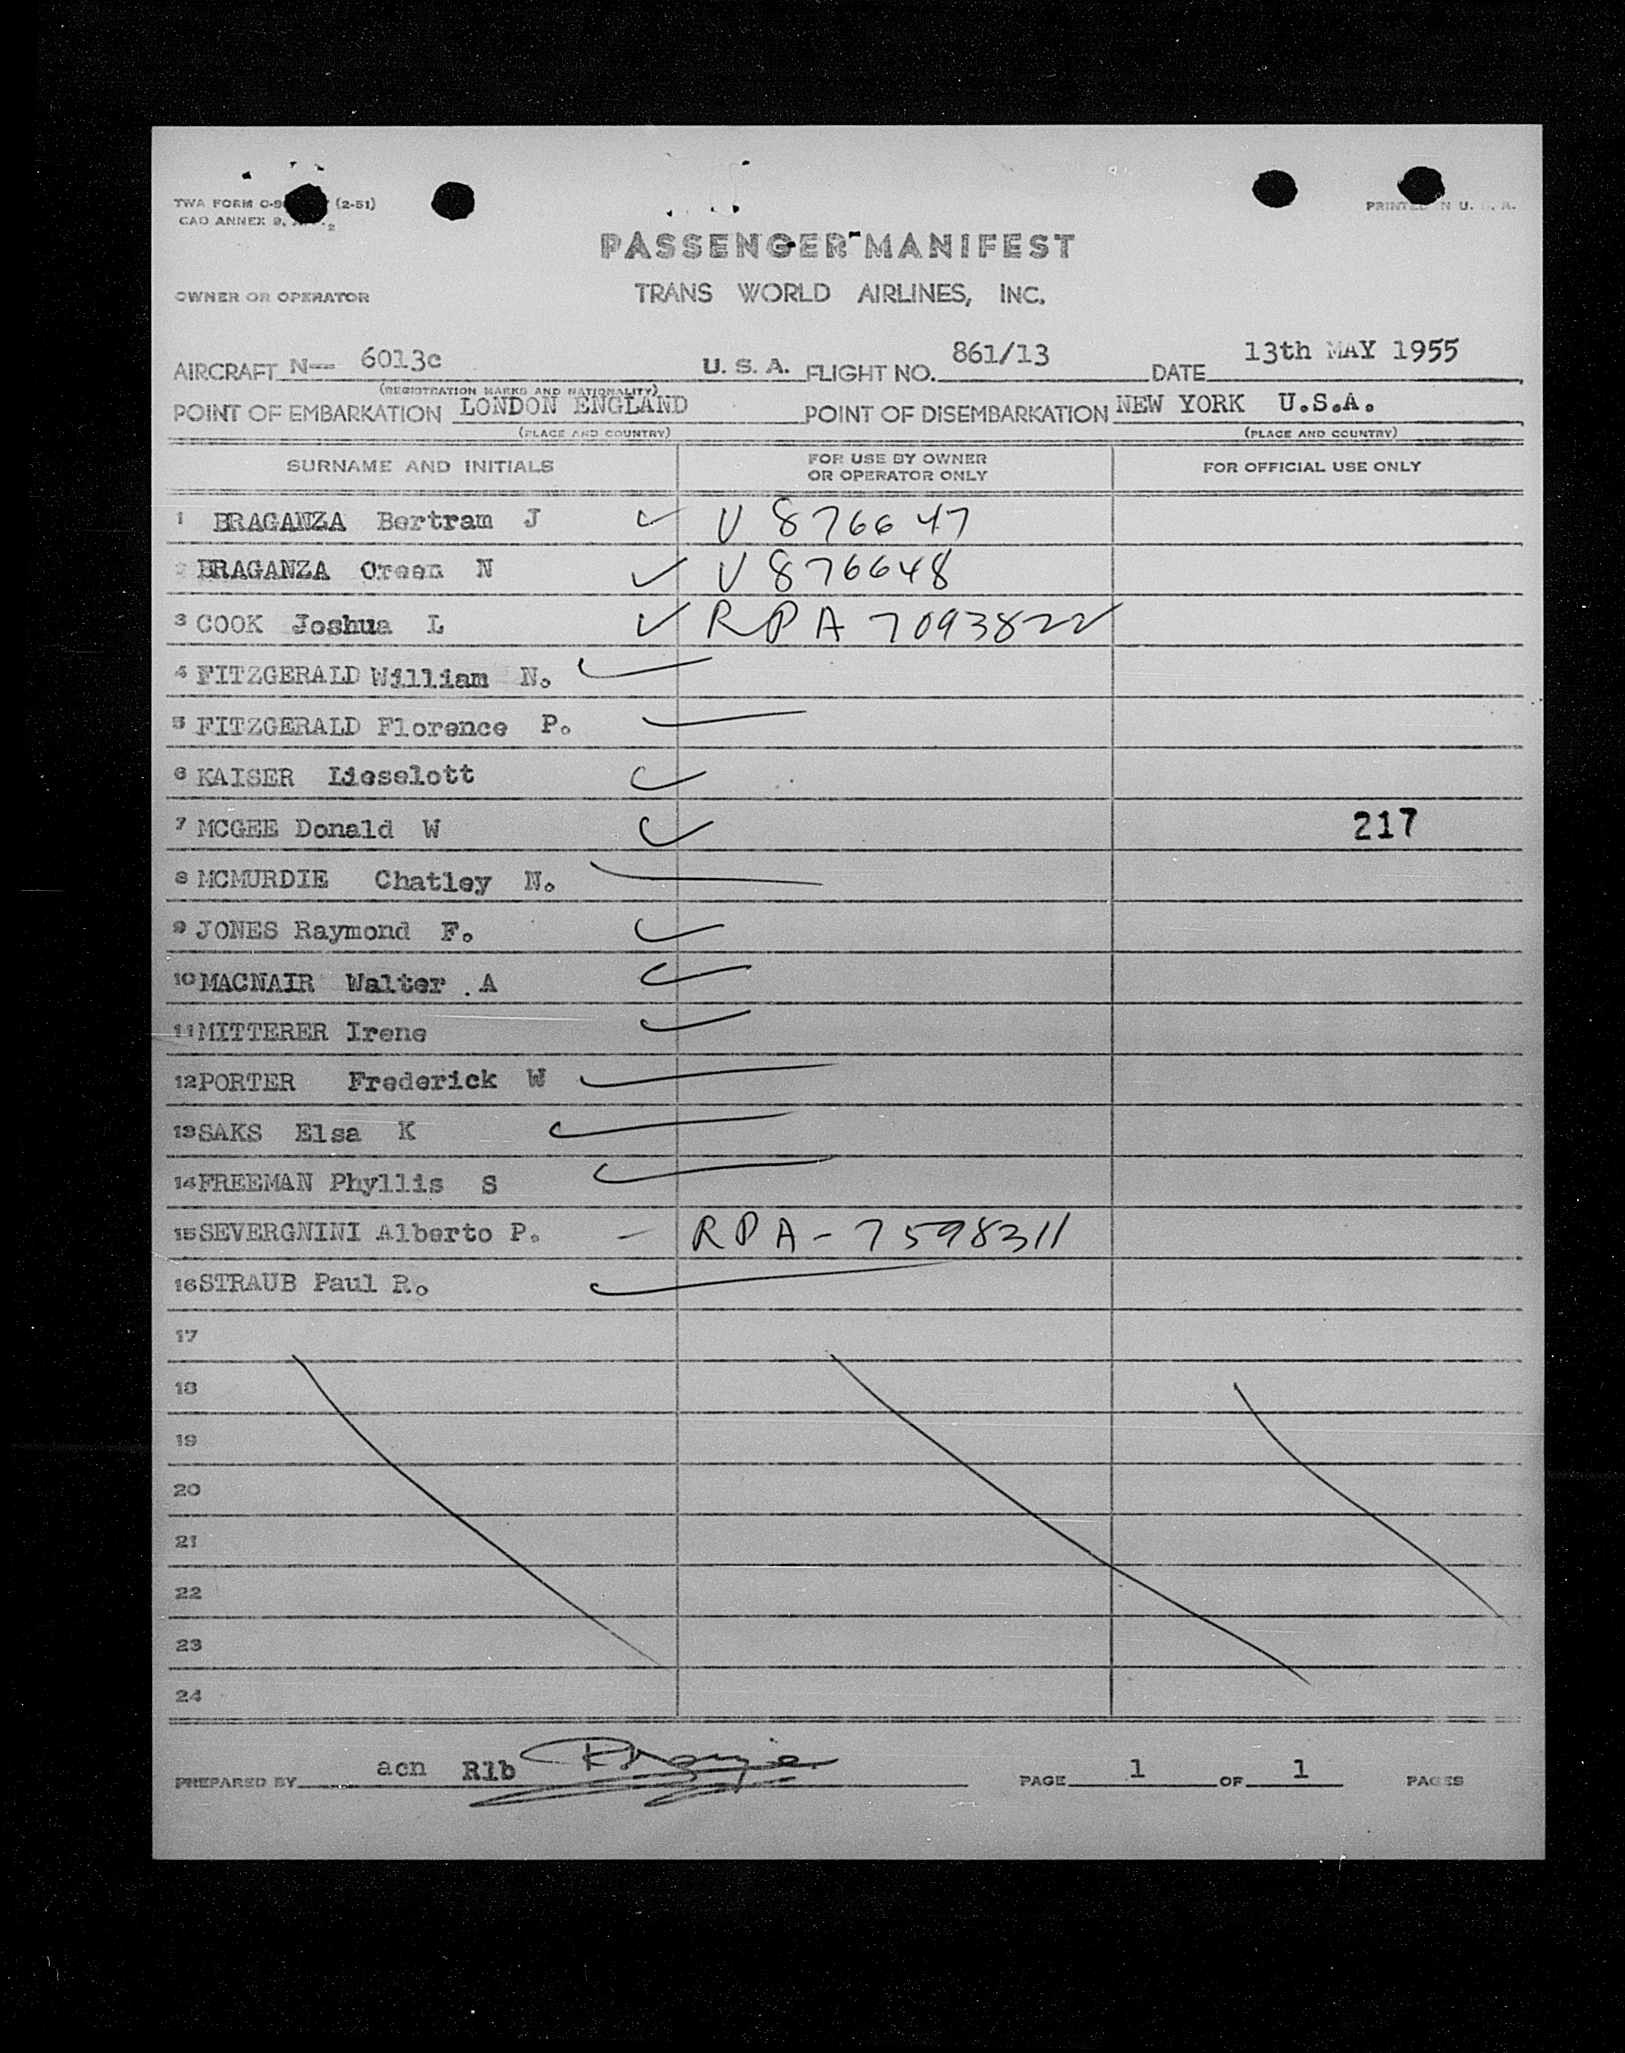 TWA FORM O-9 (2-51)
PRINTED IN U. S. A.
CAO ANNEX 9,
PASSENGER MANIFEST
OWNER OR OPERATOR TRANS WORLD AIRLINES, INC.
AIRCRAFT N-- 6013c U. S. A. FLIGHT NO. 861/13 DATE 13th MAY 1955
(REGISTRATION MARKS AND NATIONALITY)
POINT OF EMBARKATION LONDON ENGLAND POINT OF DISEMBARKATION NEW YORK U.S.A.
(PLACE AND COUNTRY) (PLACE AND COUNTRY)
SURNAME AND INITIALS FOR USE BY OWNER OR OPERATOR ONLY FOR OFFICIAL USE ONLY
1 BRAGANZA Bertram J V 876647
2 BRAGANZA Oreen N V 876648
3 COOK Joshua L RPA 7093822
4 FITZGERALD William N.
5 FITZGERALD Florence P.
6 KAISER Lieselott
7 MCGEE Donald W 217
8 MCMURDIE Chatley N.
9 JONES Raymond F.
10 MACNAIR Walter . A
11 MITTERER Irene
12 PORTER Frederick W
13 SAKS Elsa K
14 FREEMAN Phyllis S
15 SEVERGNINI Alberto P. - RPA - 7598311
16 STRAUB Paul R.
17
18
19
20
21
22
23
24
PREPARED BY acn Rlb PAGE 1 OF 1 PAGES